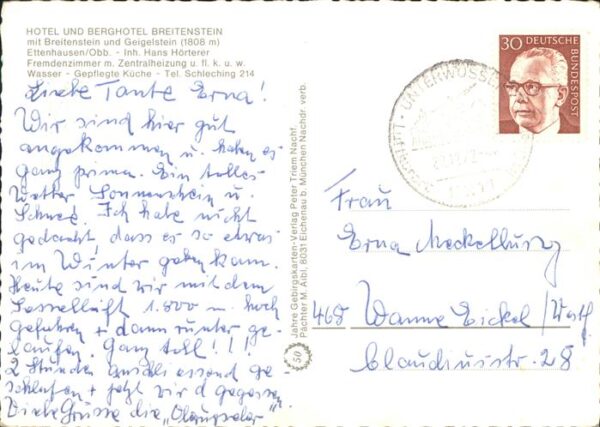 HOTEL UND BERGHOTEL BREITENSTEIN
mit Breitenstein und Geigelstein (1808 m)
Ettenhausen/Obb. - Inh. Hans Hörterer
Fremdenzimmer m. Zentralheizung u. fl. k. u. w.
Wasser - Gepflegte Küche - Tel. Schleching 214
Liebe Tante Erna!
Wir sind hier gut
angekommen u. haben es
ganz prima. Ein tolles
Wetter Sonnenschein u.
Schnee. Ich habe nicht
gedacht, dass es so etwas
im Winter geben kann.
Heute sind wir mit dem
Sessellift 1.800 m. hoch
gefahren + dann runter ge-
laufen. Ganz toll!!!
2 Stunden anschliessend ge-
schlafen + jetzt wird gegessen
Viele Grüsse die
50 Jahre Gebirgskarten-Verlag Peter Triem Nachf.
Pächter M. Aibl, 8031 Eichenau b. München Nachdr. verb.
30 DEUTSCHE
BUNDESPOST
UNTERWÖSSEN
Frau
Erna Meckelburg
468 Wanne Eickel/Westf
Claudiusstr. 28